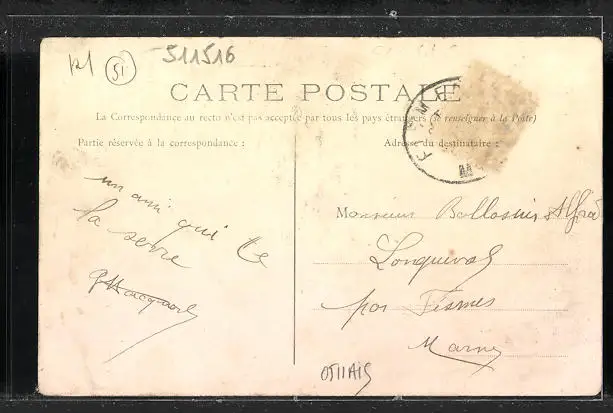 51
511516
CARTE POSTALE
La Correspondance au recto n'est pas acceptée par tous les pays étrangers (Se renseigner à la Poste)
Partie réservée à la correspondance :
Adresse du destinataire :
un ami qui te
la serre
Monsieur Alfred
Longueval
par Fismes
Marne